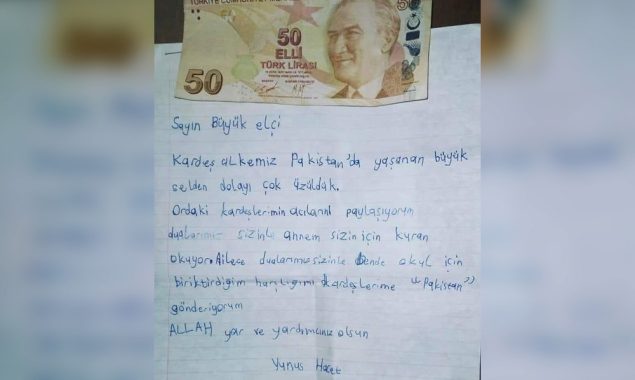 TÜRKİYE CUMHURİYET MERKEZ
50
50
ELLİ
TÜRK LİRASI
50
Sayın Büyük elçi
Kardeş ülkemiz Pakistan'da yaşanan büyük
selden dolayı çok üzüldük.
Ordaki kardeşlerimin acılarını paylaşıyorum
dualarımız sizinle annem sizin için kuran
okuyor. Ailece dualarımız sizinle bende okul için
biriktirdiğim harçlığımı kardeşlerime "Pakistan"
gönderiyorum
ALLAH yar ve yardımcınız olsun
Yunus